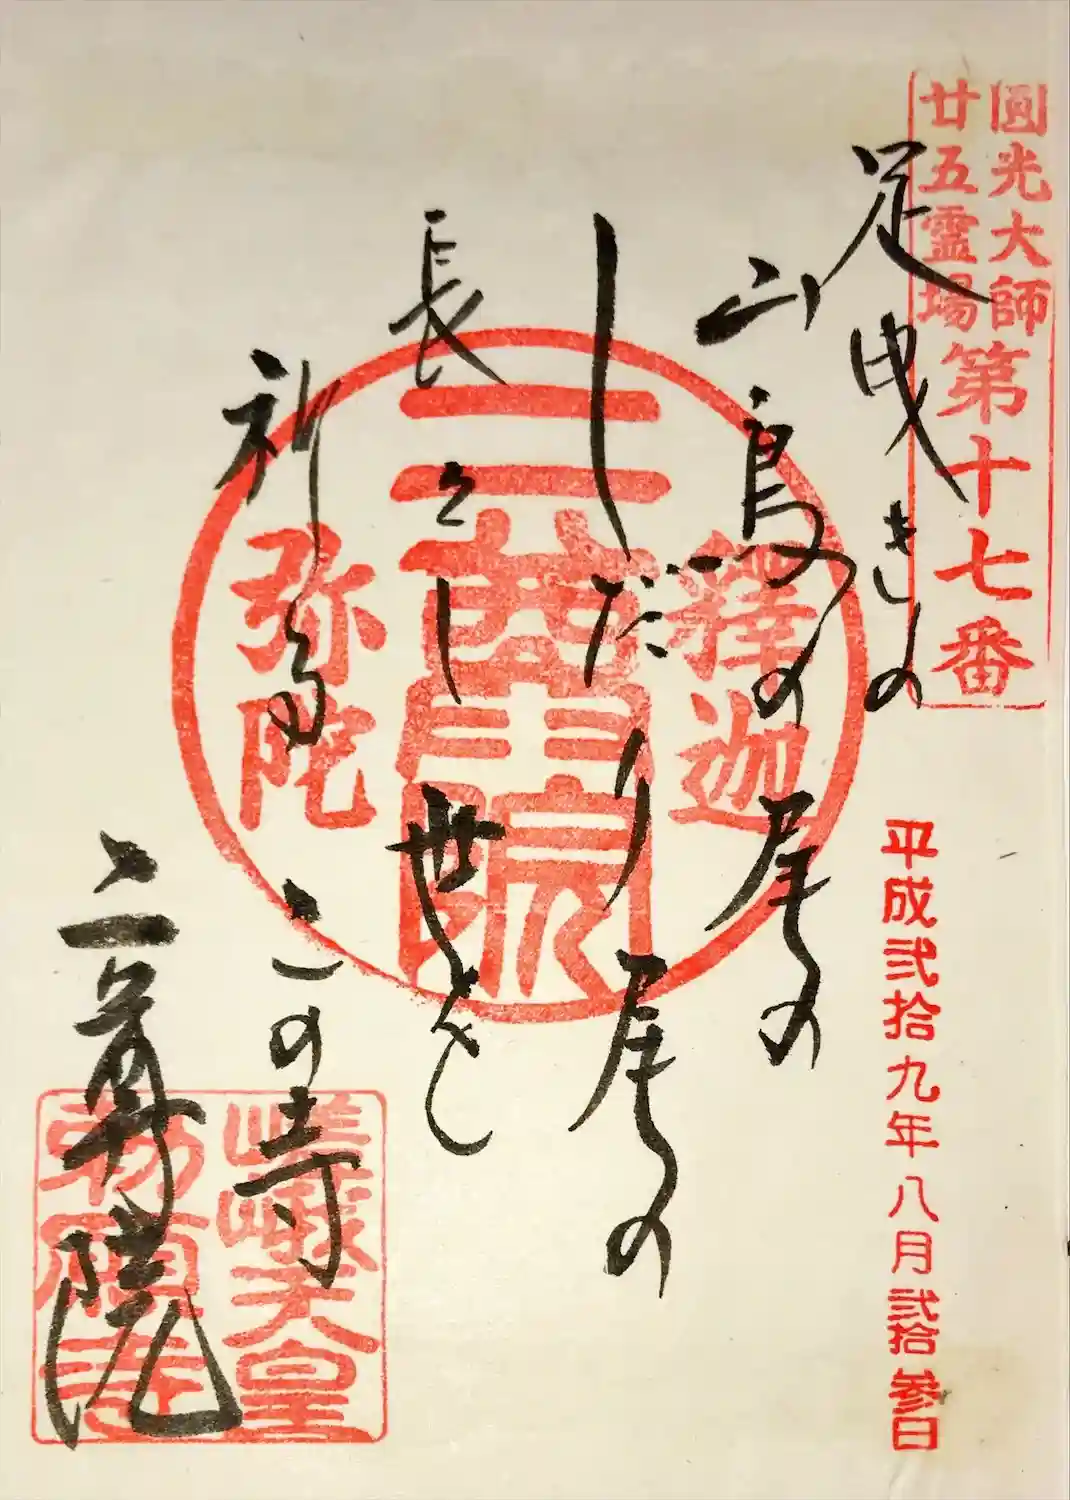 圓光大師
廿五霊場
第十七番
足曳きの
山鳥の尾の
しだり尾の
長々し世を
祈る
この寺
二尊院
釋迦
二尊院
弥陀
嵯峨天皇
勅願寺
平成弐拾九年八月弐拾参日